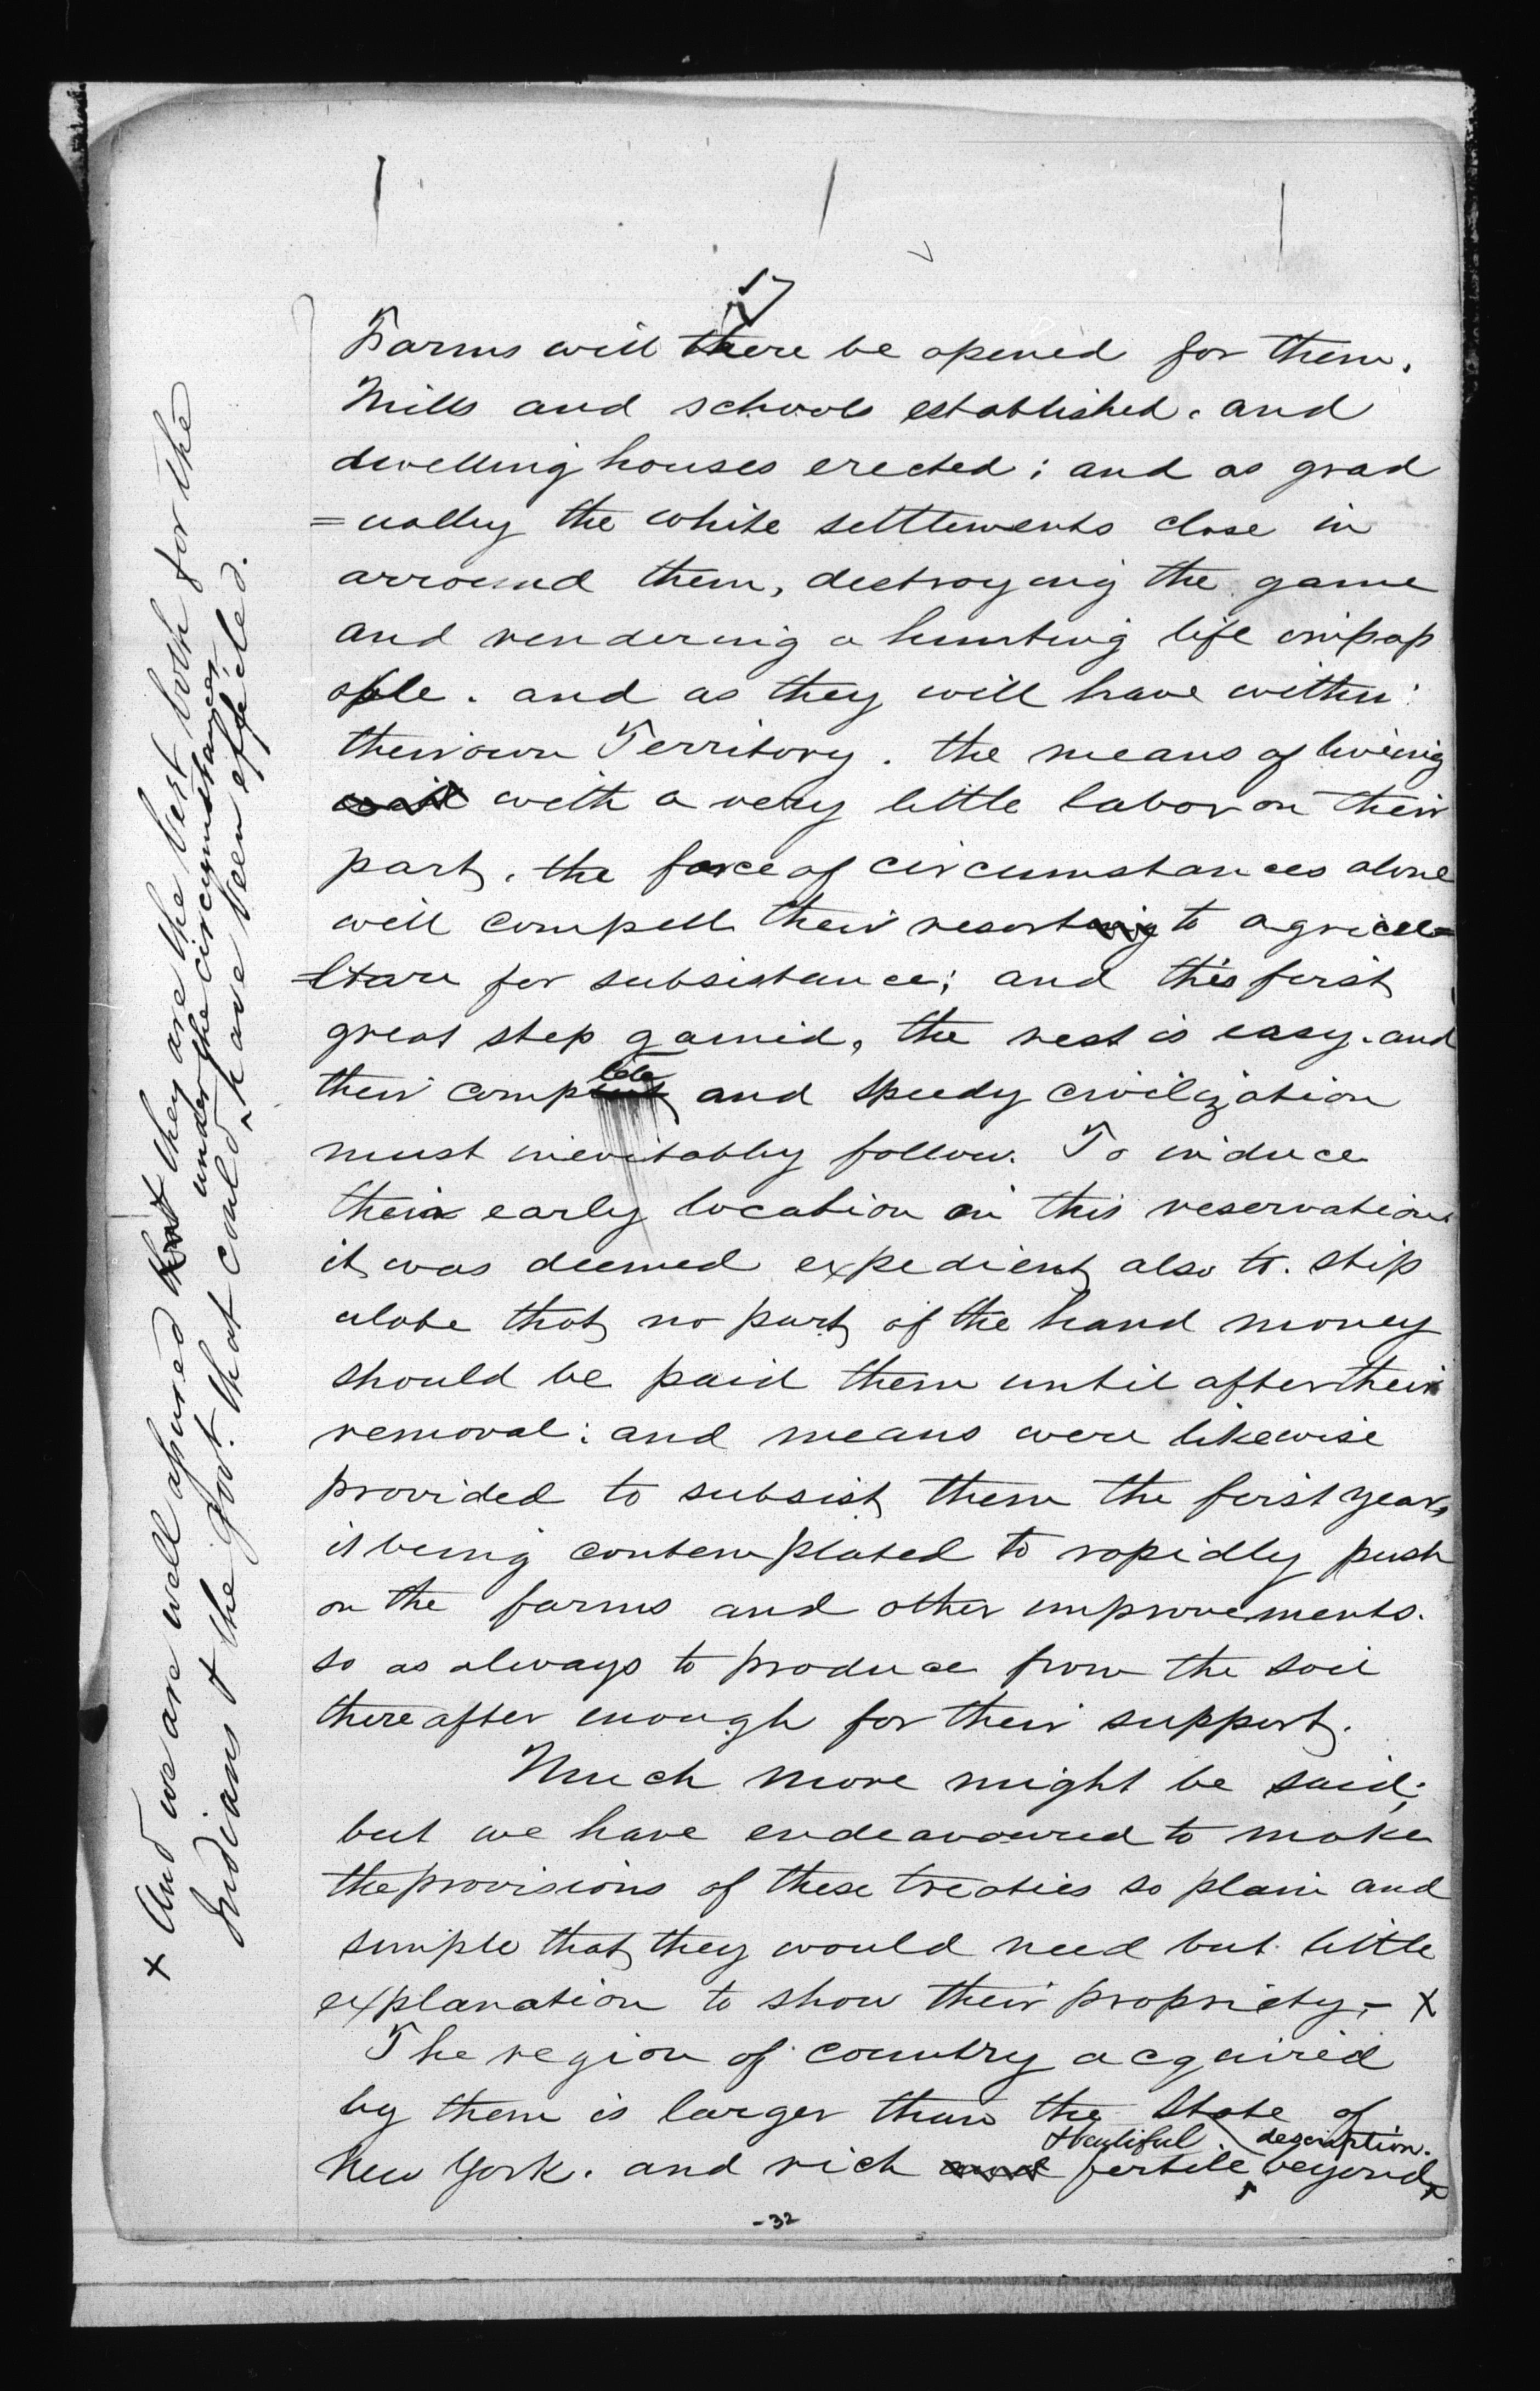 17
Farms will there be opened for them,
Mills and schools established, and
dwelling houses erected; and as grad
=ually the white settlements close in
arround them, destroying the game
and rendering a hunting life impop
able. and as they will have within
their own Territory. the means of living
with a very little labor on their
part, the force of circumstances alone
will compell their resort to agricul=
=lture for subsistance; and this first
great step gained, the rest is easy. and
their complete and speedy civilization
must inevitably follow. To induce
their early location on this reservation
it was deemed expedient also to stip
ulate that no part of the hand money
should be paid them until after their
removal: and means were likewise
provided to subsist them the first year,
it being contemplated to rapidly push
on the farms and other improvements.
so as always to produce from the soil
thereafter enough for their support.
Much more might be said;
but we have endeavoured to make
the provisions of these treaties so plain and
simple that they would need but little
explanation to show their propriety. – x
The region of country acquired
by them is larger than the State of
New York. and rich fertile & beautiful beyond description.
-32
x And we are well assured that they are the best both for the
Indians & the Govt. that could under the circumstances have been effected.